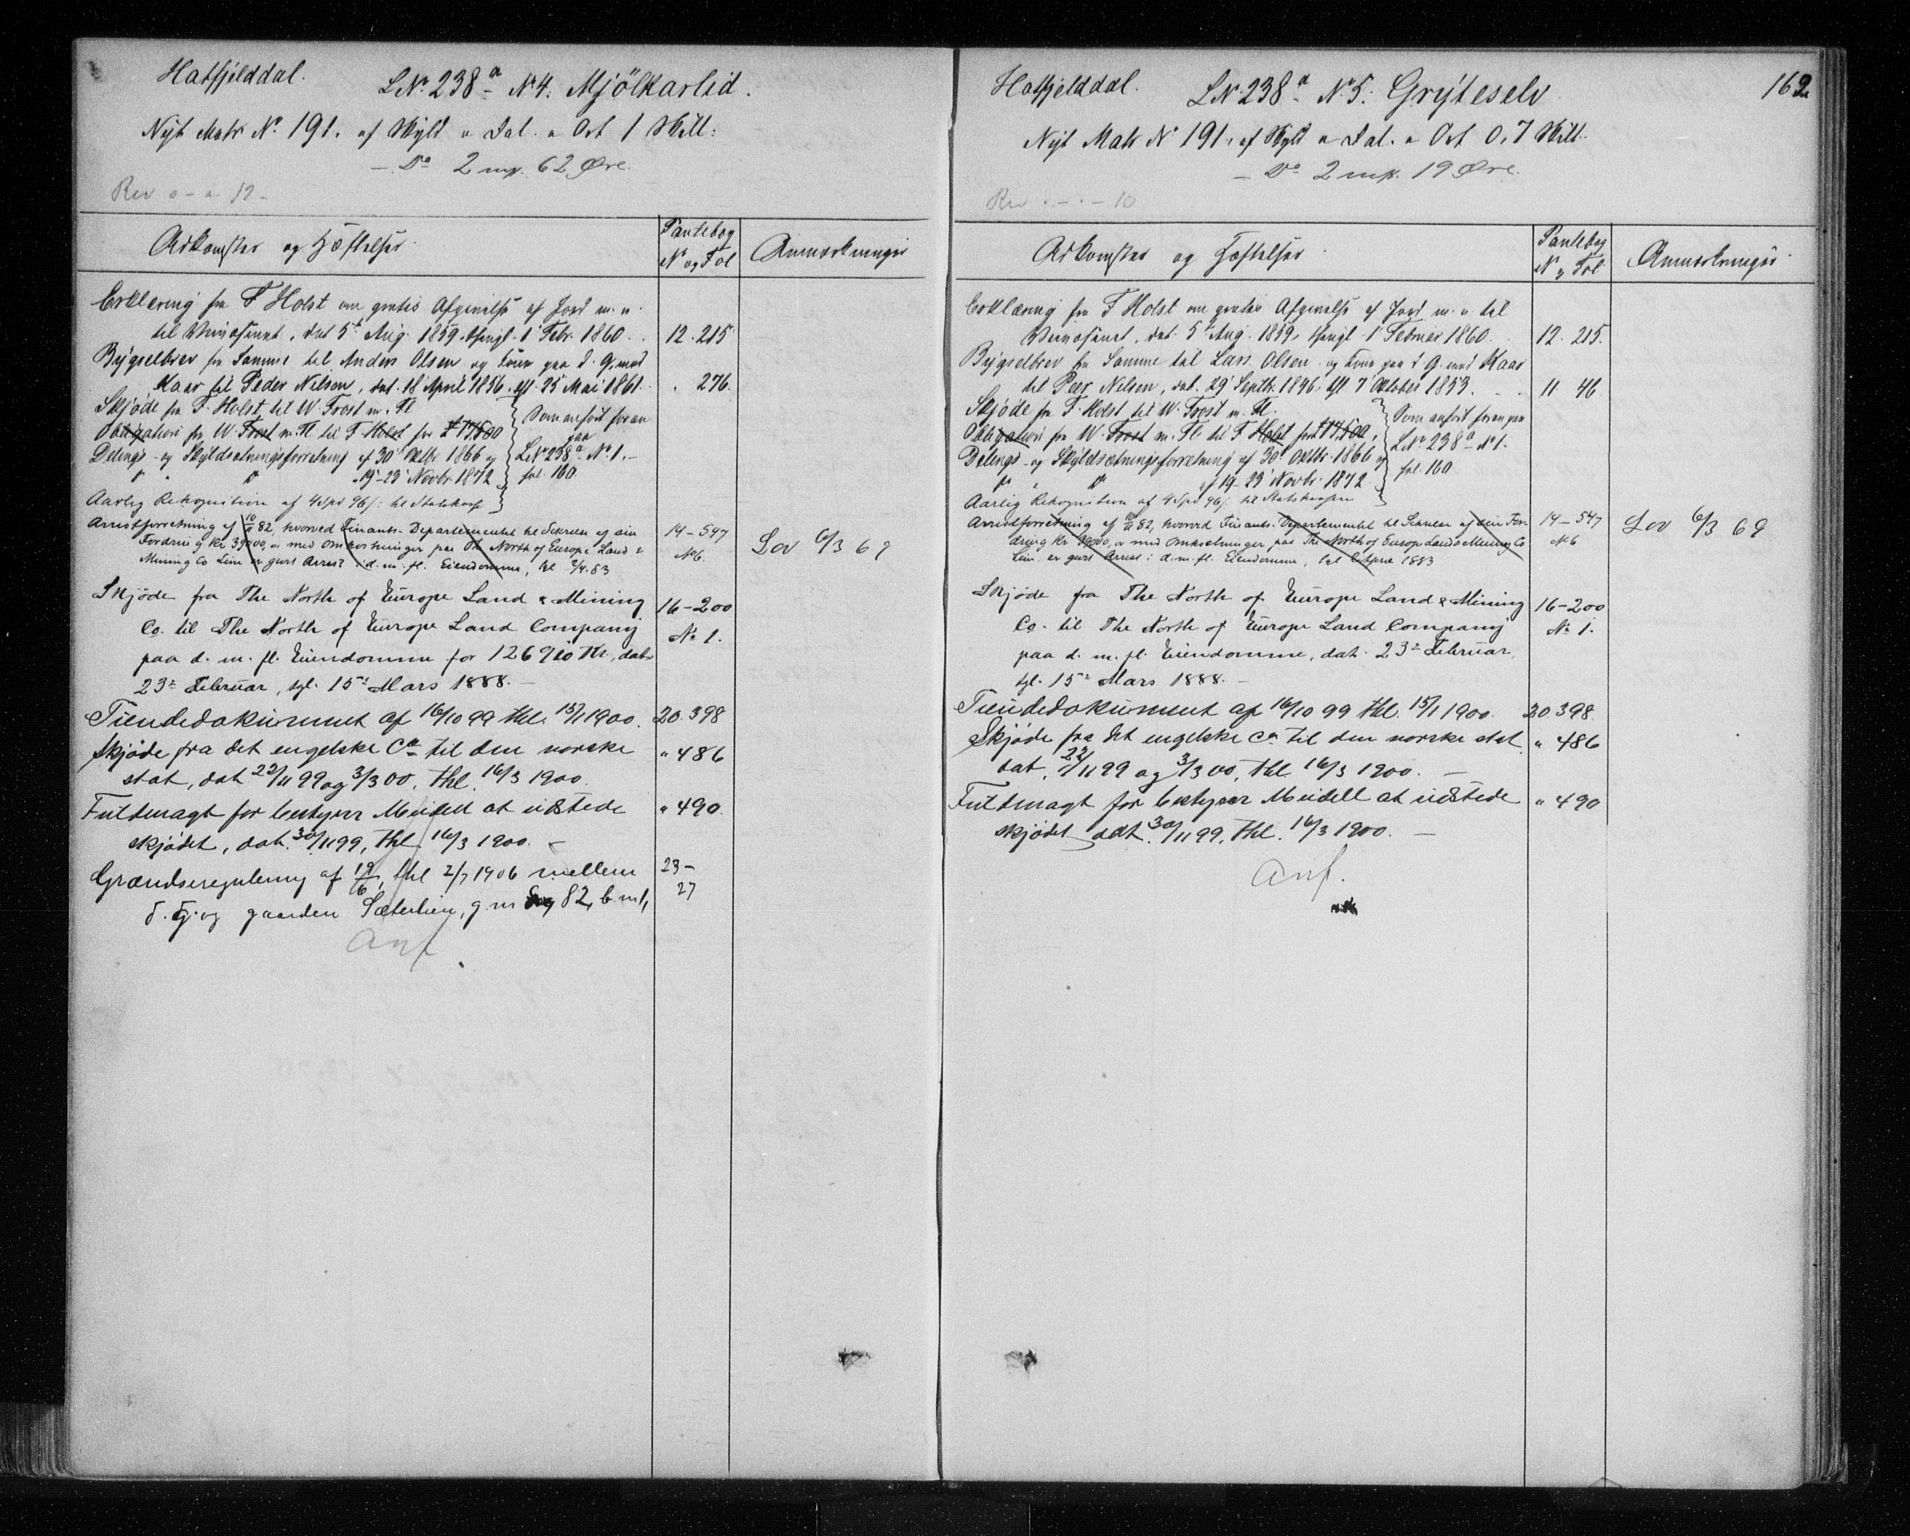 Hatfjelddal. LNr. 238a N4. Mjölkarlid.
Nyt Matr No. 191. af Skyld " Dal. " Ort 1 Skill:
— Do 2 mk. 62 Øre.
Rev 0 - 0. 12 -
Adkomster og Hæftelser. Pantebog N og Fol Anmærkninger
Erklæring fra F Holst om gratis Afgivelse af Jord m. v.
til Veivæsenet, dat 5t Aug. 1859, thingl. 1 Febr. 1860. 12. 215
Bygselbrev fra Samme til Anders Olsen og Kone paa d. G. med
Kaar til Peder Nilsen, dat. 18 April 1856, gt. 25 Mai 1861. . 276.
Skjøde fra F. Holst til W. Frost m. Fl
Obligation fra W. Frost m. Fl til F Holst for £ 17,500
Delings- og Skyldsætningsforretning af 30 Oktbr 1866 og
" " " 19-23 Novbr 1872
Som anført foran
paa
LNo 238a No 1. -
fol. 160.
Aarlig Rekognition af 4 Spd 96 s. til Statskassen
Arrestforretning af 10/11 82, hvorved Finants-Departementet til Sikkerhed af sin
Fordring Kr 39000, m. med Omkostninger paa The North of Europe Land &
Mining Co Lim er gjort Arrest i d. m. fl. Eiendomme, tgl 2/4.83
14 - 547
No 6.
Lov 6/3 69
Skjøde fra The North of Europe Land & Mining
Co. til The North of Europe Land Company
paa d. m. fl. Eiendomme for 126910 Kr, dat.
23de Februar, tgl. 15de Mars 1888. —
16 - 200
No 1.
Tiendedokument af 16/10 99 thl. 15/1 1900. 20 398
Skjøde fra det engelske Co til den norske
stat, dat 22/11 99 og 3/3 00, thl. 16/3 1900. " 486
Fuldmagt for bestyrer Meidell at udstede
skjødet, dat. 30/11 99, thl. 16/3 1900. — " 490.
Grændseregulering af 19/6, thl 2/7 1906 mellem 23 -
d. G. og gaarden Sæterlien, g. nr 82, b. nr 1, 27
Anf.
Hatfjelddal. LNr 238a. No 5. Grýteselv 162
Nyt Matr No 191. af Skyld " Dal. " Ort 0,7 Skill.
— Do 2 mk. 19 Øre.
Rev . - . - 10
Adkomster og Hæftelser. Pantebog N og Fol. Anmærkninger
Erklæring fra F Holst om gratis Afgivelse af Jord m. v til
Veivæsenet, dat. 5t Aug. 1859, thingl 1 Februar 1860. 12. 215.
Bygselbrev fra Samme til Lars Olsen og Kone paa d G. med Kaar
til Peer Nilsen, dat. 29 Septbr. 1846. gt 7 Oktober 1853. 11 46
Skjøde fra F. Holst til W. Frost m. Fl.
Obligation fra W. Frost m. Fl til F Holst for £ 17,500,
Delings- og Skyldsætningsforretning af 30 Oktbr. 1866 og
" " af 19 - 23 Novbr 1872
Som anført foran paa
LNo 238a No 1.
fol. 160
Aarlig Rekognition af 4 Spd 96 s. til Statskassen
Arrestforretning af 10/11 82, hvorved Finants-Departementet til Sikkerhed af sin For-
dring Kr 39000, m med Omkostninger paa The North of Europe Land & Mining Co
Lim er gjort Arrest i d. m. fl. Eiendomme, tgl 2 April 1883
14 - 547
No 6
Lov 6/3 69
Skjøde fra The North of Europe Land & Mining
Co. til The North of Europe Land Company
paa d. m. fl. Eiendomme, dat. 23de Februar,
tgl. 15de Mars 1888. —
16 - 200
No 1.
Tiendedokument af 16/10 99 thl. 15/1 1900. 20 398
Skjøde fra det engelske Co til den norske stat " 486
dat. 22/11 99 og 3/3 00, thl 16/3 1900. —
Fuldmagt for bestyrer Meidell at udstede " 490
skjødet dat. 30/11 99, thl. 16/3 1900. —
Anf.